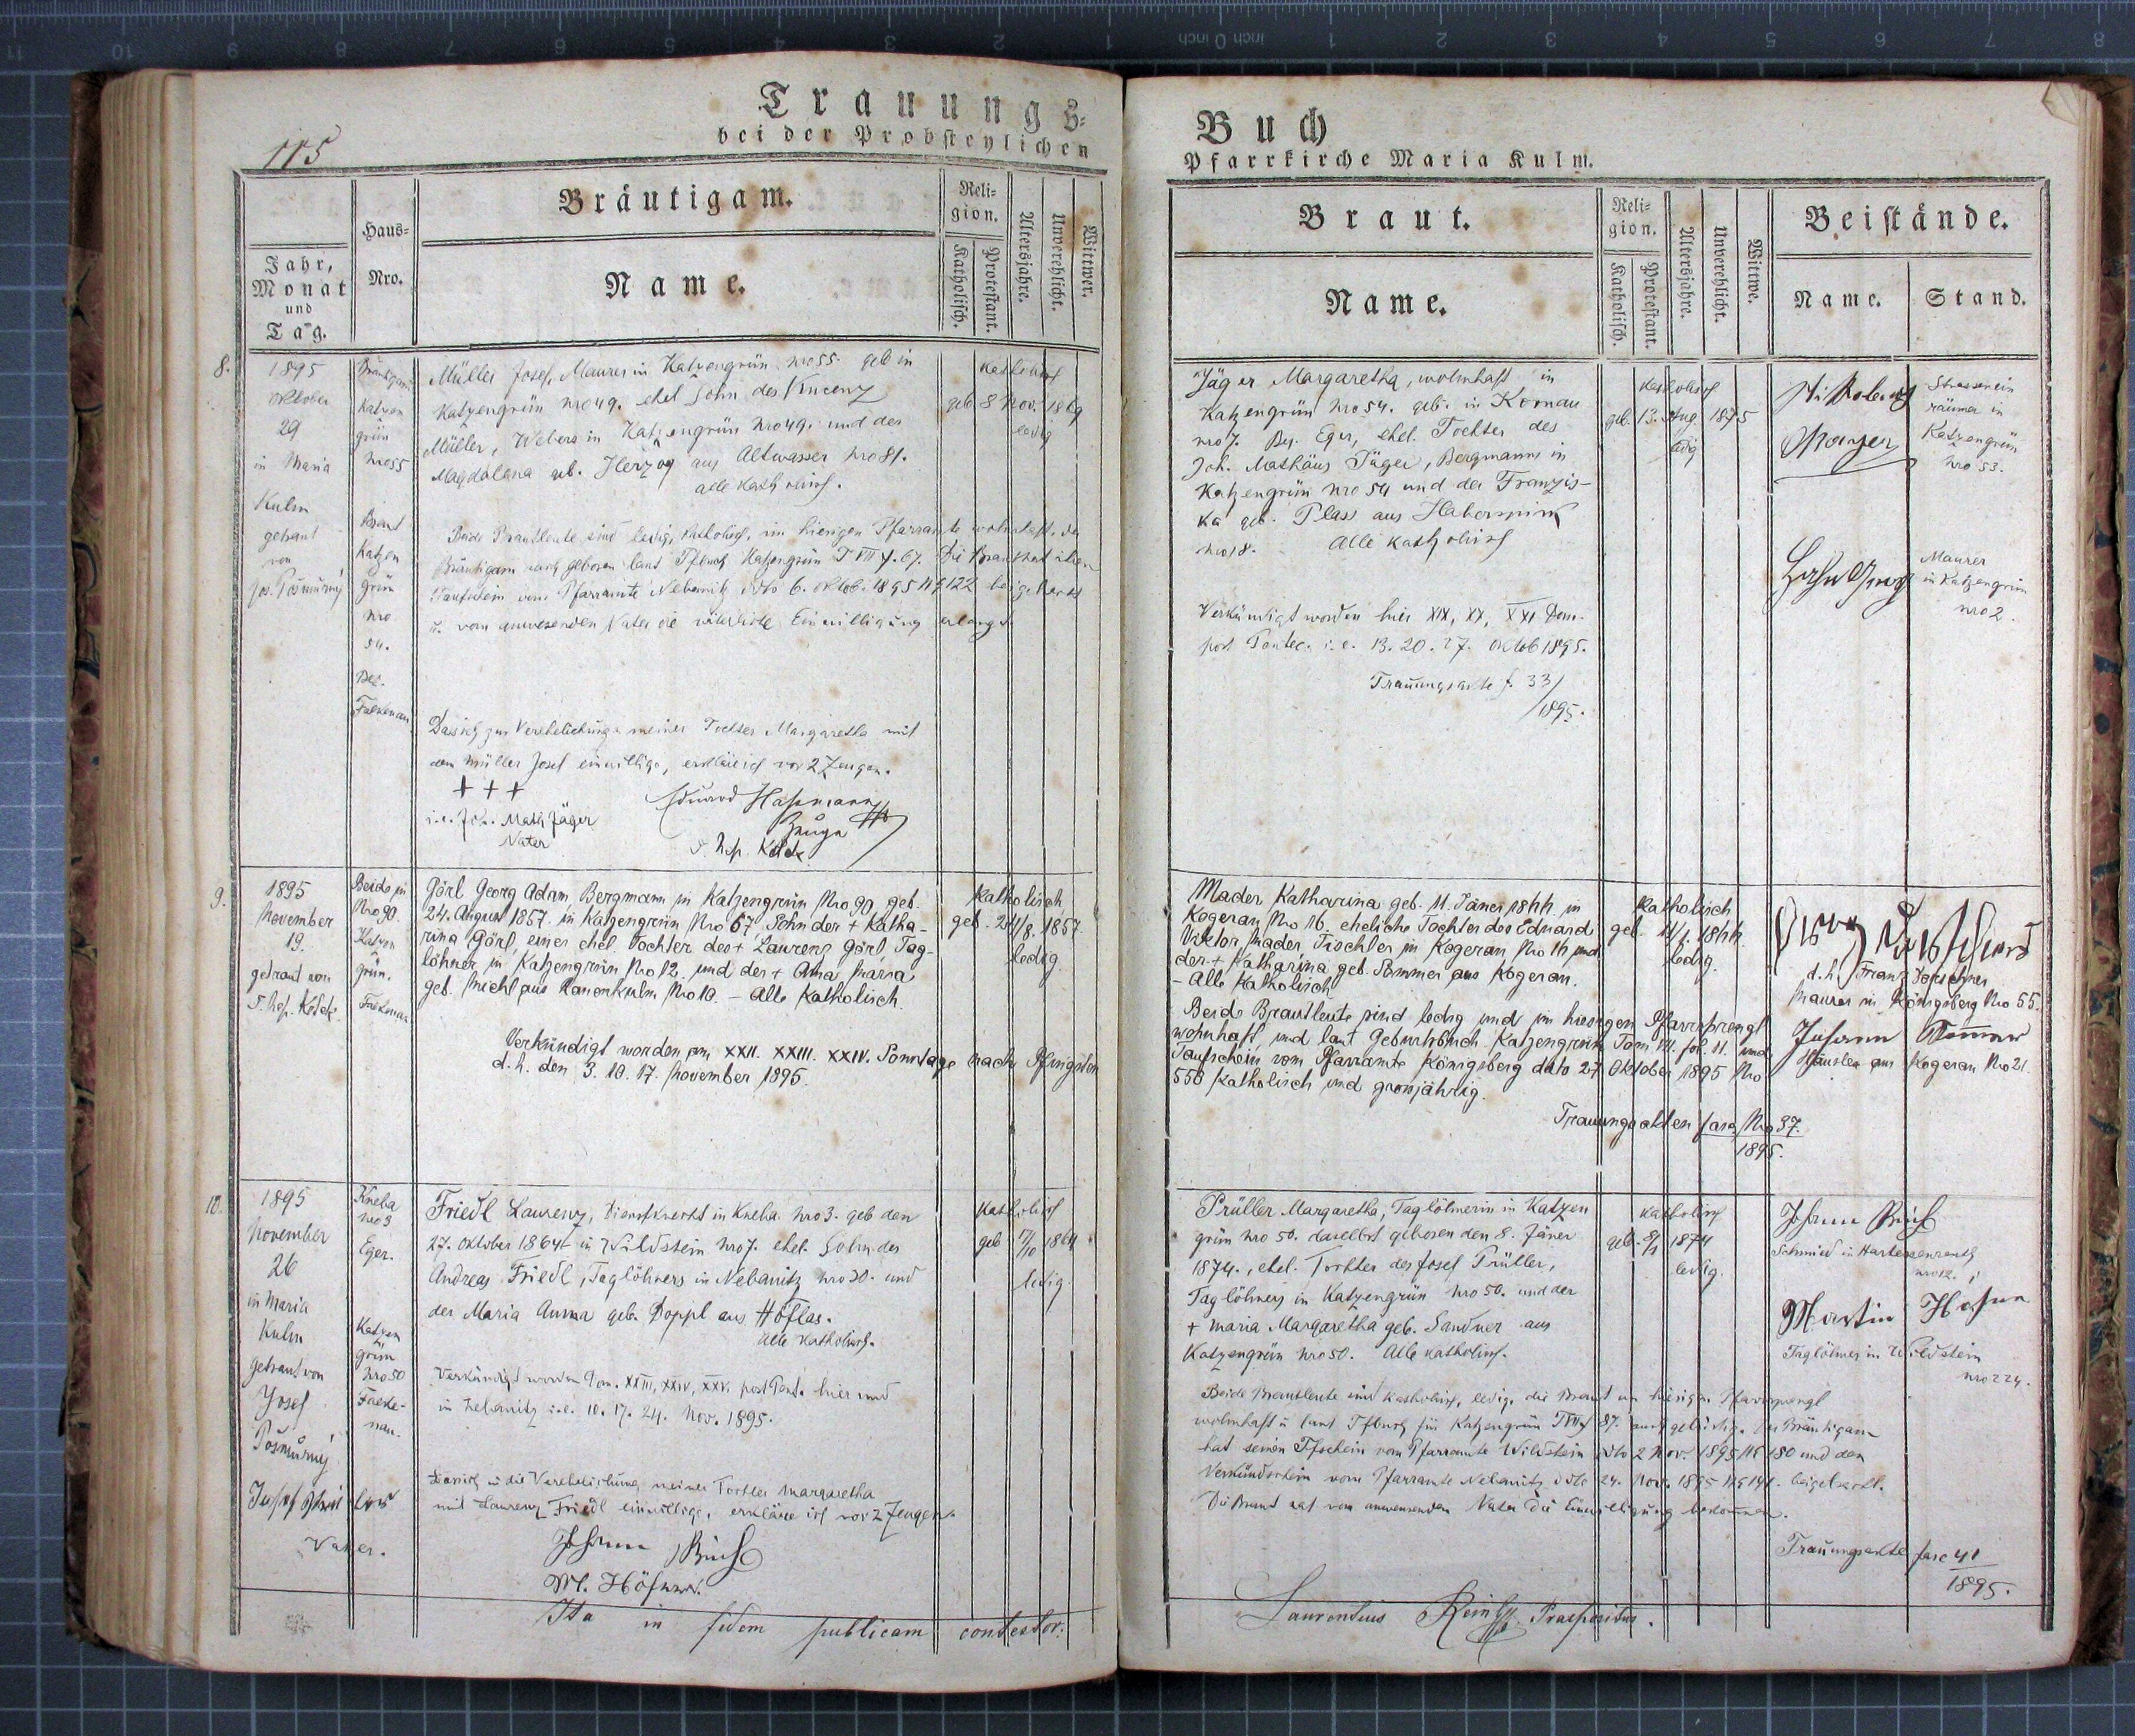 115
Trauungs-
bei der Probsteylichen
Jahr,
Monat
und
Tag.
Haus-
Nro.
Bräutigam.
Name.
Reli-
gion.
Katholisch.
Protestant.
Altersjahre.
Unverehlicht.
Wittwer.
8.
1895
Oktober
29
in Maria
Kulm
getraut
von
Jos. Pošmurný
Bräutigam
Katzen
grün
nro 55
Braut
Katzen
grün
nro
54.
Bez.
Falkenau
Müller Josef, Maurer in Katzengrün nro 55. geb in
Katzengrün nro 49. ehel Sohn des Vincenz
Müller, Webers in Katzengrün nro 49. und der
Magdalena geb. Herzog aus Altwasser nro 81.
alle katholisch.
katholisch
geb. 8 Nov. 1869
ledig
Beide Brautleute sind ledig, katholisch, im hiesigen Pfarramte wohnhaft. Der
Bräutigam auch geboren laut Tfbuch Katzengrün T VII f. 67. Die Braut hat ihren
Taufschein vom Pfarramte Nebanitz ddto 6. Oktob. 1895 N 122 beigebracht
u. vom anwesenden Vater die väterliche Einwilligung erlangt.
Dass ich zur Verehelichung meiner Tochter Margaretha mit
dem Müller Josef einwillige, erkläre ich vor 2 Zeugen.
+ + +
i.e. Joh. Math Jäger
Vater
Eduard Hassmann
Zeuge
9.
1895
November
19.
getraut von
Beide in
Nro 90.
Katzen
grün.
Falkenau
Görl Georg Adam, Bergmann in Katzengrün Nro 90, geb.
24. August 1857. in Katzengrün Nro 67 Sohn der + Katha-
rina Görl, einer ehel Tochter des + Laurenz Görl Tag-
löhner in Katzengrün Nro 12. und der + Anna Maria
geb. Michl aus Nonnenkulm Nro 10. – Alle Katholisch.
Katholisch
geb. 24/8. 1857.
ledig.
Verkündigt worden am XXII. XXIII. XXIV. Sonntage nach Pfingsten
d.h. den 3. 10. 17. November 1895.
10.
1895
November
26
in Maria
Kulm
getraut von
Josef
Pošmurný
Kneba
nro 3
Eger.
Katzen
grün
nro 50
Falke-
nau.
Friedl Laurenz, Dienstknecht in Kneba nro 3. geb den
27. Oktober 1864 in Wildstein nro 7. ehel. Sohn des
Andreas Friedl, Taglöhners in Nebanitz nro 30. und
der Maria Anna geb. Doppl aus Höflas.
Alle katholisch.
katholisch
geb 27/10 1864
ledig.
Verkündigt worden Dom. XXIII, XXIV, XXV. post Pent. hier und
in Nebanitz i.e. 10. 17. 24. Nov. 1895.
Dass ich in die Verehelichung meiner Tochter Margaretha
mit Laurenz Friedl einwillige, erkläre ich vor 2 Zeugen.
Vater.
M. Höfner.
Ita in fidem publicam contestor.
Buch
Pfarrkirche Maria Kulm.
Braut.
Name.
Reli-
gion.
Katholisch.
Protestant.
Altersjahre.
Unverehlicht.
Wittwe.
Beistände.
Name.
Stand.
Jäger Margaretha, wohnhaft in
Katzengrün nro 54. geb. in Kornau
nro 7. Bez. Eger, ehel. Tochter des
Joh. Mathäus Jäger, Bergmanns in
Katzengrün nro 54 und der Franzis-
ka geb. Plass aus
nro 18. Alle katholisch
katholisch
geb. 13. Aug. 1875
ledig
Mayer
Strassenein
räumer in
Katzengrün
nro 53.
Maurer
in Katzengrün
nro 2.
Verkündigt worden hier XIX, XX, XXI Dom.
post Pentec. i.e. 13. 20. 27. Oktob 1895.
Trauungsakte f. 33/
1895.
Mader Katharina geb. 11. Jäner 1844 in
Kogerau Nro 16. eheliche Tochter des Eduard
Viktor Mader Tischler in Kogerau Nro 16 und
der + Katharina geb. Sommer aus Kogerau.
– Alle Katholisch
Katholisch
geb. 11/1. 1844.
ledig.
d.h. Franz
Maurer in Königsberg Nro 55.
Johann
Häusler aus Kogerau Nro 21.
Beide Brautleute sind ledig und im hiesigen Pfarrsprengl
wohnhaft, und laut Geburtsbuch Katzengrün Tom VII. fol. 11. und
Taufschein vom Pfarramte Königsberg dato 27 Oktober 1895 Nro
550 Katholisch und grosjährig.
Trauungsakten fasc. Nro 37.
1895.
Prüller Margaretha, Taglöhnerin in Katzen
grün nro 50. daselbst geboren den 8. Jäner
1874., ehel. Tochter des Josef Prüller,
Taglöhners in Katzengrün nro 50. und der
+ Maria Margaretha geb. Sandner aus
Katzengrün nro 50. Alle katholisch.
katholisch
geb. 8/1 1874
ledig.
Schmied in Hartessenreuth
nro 12.
Martin
Taglöhner in Wildstein
nro 224.
Beide Brautleute sind katholisch, ledig, die Braut im hiesigen Pfarrsprengl
wohnhaft u laut Tfbuch für Katzengrün T VII f 87. auch gebürtig. Der Bräutigam
hat seinen Tfschein vom Pfarramte Wildstein ddto 2 Nov. 1895 N 180 und den
Verkündschein vom Pfarramte Nebanitz ddto 24. Nov. 1895 N 141. beigebracht.
Die Braut hat vom anwesenden Vater die Einwilligung bekommen.
Trauungsakte fasc 41
1895.
Laurentius Praepositus.